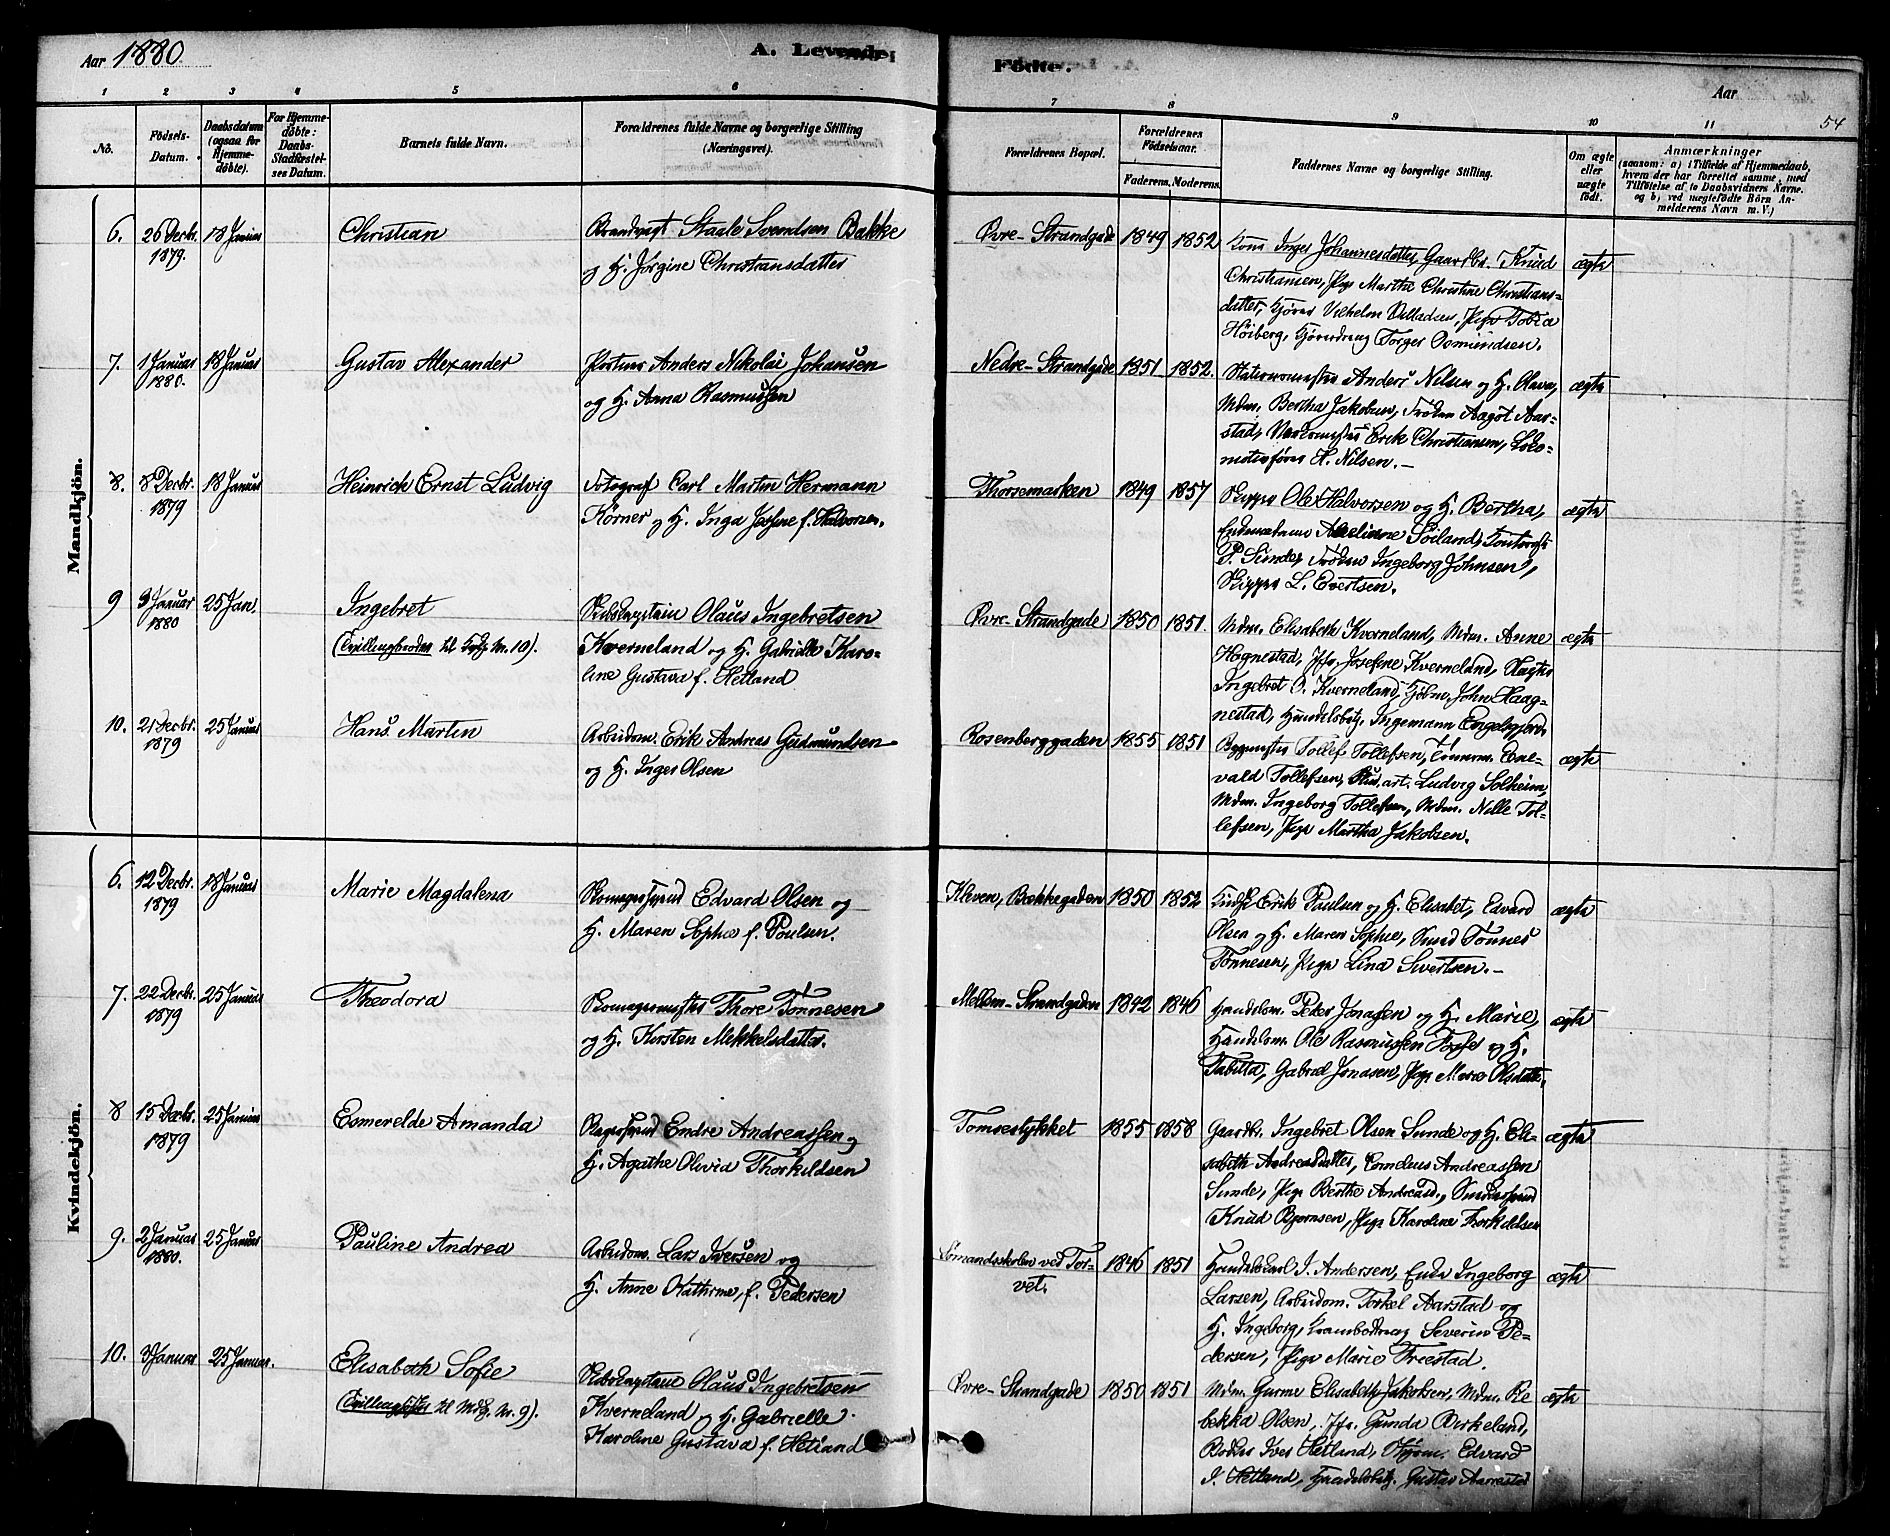 Aar 1880.
A. Levende
Födte.
Aar
54
1 2 3 4 5 6 7 8 9 10 11
No.
Födsels-
Datum.
Daabsdatum
(ogsaa for
Hjemme-
døbte).
For Hjemme-
døbte:
Daabs-
Stadfæstel-
ses Datum.
Barnets fulde Navn.
Forældrenes fulde Navne og borgerlige Stilling
(Næringsvei).
Forældrenes Bopæl.
Forældrenes
Födselsaar.
Faderens. Moderens.
Faddernes Navne og borgerlige Stilling.
Om ægte
eller
uægte
født.
Anmærkninger
(saasom: a) i Tilfælde af Hjemmedaab,
hvem der har forrettet samme, med
Tilføielse af to Daabsvidners Navne.
og b) ved uægtefødte Börn An-
melderens Navn m. V.)
Mandkjön.
6. 26 Decbr. 1879. 18 Januar
Christian
Brandvagt Staale Svendsen Bakke
og H. Jorgine Christiansdatter
Øvre-Strandgade 1849 1852
Kone Inger Johannesdatter, Gaardbr. Knud
Christiansen, Pige Marthe Christine Christians-
datter, Kjører Vilhelm Villadsen, Pige Tobia
Høiberg, Torger Osmundsen.
ægte
7. 1 Januar 1880. 18 Januar
Gustav Alexander
Portner Anders Nikolai Johansen
og H. Anna Rasmussen
Nedre-Strandgade 1851 1852.
Anders Nilsen og H. Olava,
Mdm. Bertha Jakobsen, Frøken Aagot Aar-
stad, Erik Christiansen, Loko-
motivfører H. Nilsen.
ægte
8. 8 Decbr. 1879 18 Januar
Heinrich Ernst Ludvig
Fotograf Carl Martin Hermann
Körner og H. Inga Josefine f. Halvorsen.
Thorsemarken 1849 1857
Skipper Ole Halvorsen og H. Bertha,
Soiland,
P. Sunde, Frøken Ingeborg Johnsen,
Skipper L. Evertsen.
ægte
9 3 Januar 1880 25 Jan.
Ingebret
(Tvillingbroder til No. 10).
Skibscaptain Olaus Ingebretsen
Kverneland og H. Gabrielle Karo-
line Gustava f. Hetland
Øvre-Strandgade 1850 1851.
Mdm. Elisabeth Kverneland, Mdm. Anne
Hognestad, Jfr. Josefine Kverneland,
Ingebret O. Kverneland, John Haag-
nestad, Handelsbetj. Ingemann
ægte
10. 21 Decbr. 1879 25 Januar
Hans Martin
Arbeidsm. Erik Andreas Gudmundsen
og H. Inger Olsen
Rosenberggaden 1855 1851
Bygmester Tollef Tollefsen, Tømmerm. Ene-
vald Tollefsen, Ludvig Solheim,
Mdm. Ingeborg Tollefsen, Mdm. Nelle Tol-
lefsen, Pige Martha Jakobsen.
ægte
Kvindekjön.
6. 12 Decbr. 1879 18 Januar
Marie Magdalena
Skomagersvend Edvard Olsen og
H. Maren Sophie f. Poulsen.
Kleven, Bækkegaden 1850 1852
Erik Paulsen og H. Elisabet, Edvard
Olsen og H. Maren Sophie, Smed Tønnes
Tønnesen, Pige Lina Sivertsen.
ægte
7. 22 Decbr. 1879 25 Januar
Theodora
Skomagermester Thore Tönnesen
og H. Karsten Mikkelsdatter.
Mellem-Strandgaden 1842 1846
Handelsm. Peder Jonassen og H. Marie,
Handelsm. Ole Rasmussen og H.
Tabitta, Gabriel Jonasen, Pige Marie Olsdatter.
ægte
8 15 Decbr. 1879 25 Januar
Esmerelde Amanda
Bagersvend Endre Andreassen og
H. Agathe Olivia Thorkildsen
Tomsestykket 1855 1858
Gaardbr. Ingebret Olsen Sunde og H. Eli-
sabeth Andreasdatter, Cornelius Andreassen
Sunde, Pige Berthe Andreasd.,
Knud Bjørnsen, Pige Karoline Thorkildsen
ægte
9. 2 Januar 1880. 25 Januar
Pauline Andrea
Arbeidsm. Lars Iversen og
H. Anne Kathrine, f. Pedersen
Sømandsskolen ved Tor-
vet. 1846 1851
Handelskarl J. Andersen, Enke Ingeborg
Larsen, Arbeidsm. Torkel Aarstad og
H. Ingeborg, Severin Pe-
dersen, Pige Marie Treestad.
ægte
10. 3 Januar 25 Januar.
Elisabeth Sofie
(Tvillingsøster til No. 9).
Skibscaptain Olaus Ingebretsen
Kverneland og H. Gabrielle
Karoline Gustava f. Hetland
Øvre-Strandgade 1850 1851
Mdm. Gurine Elisabeth Jakobsen, Mdm. Re-
bekka Olsen, Jfr. Gunda Birkeland,
Iver Hetland, Edvard
I. Hetland, Handelsbetj. Gustav Aarrestad
ægte